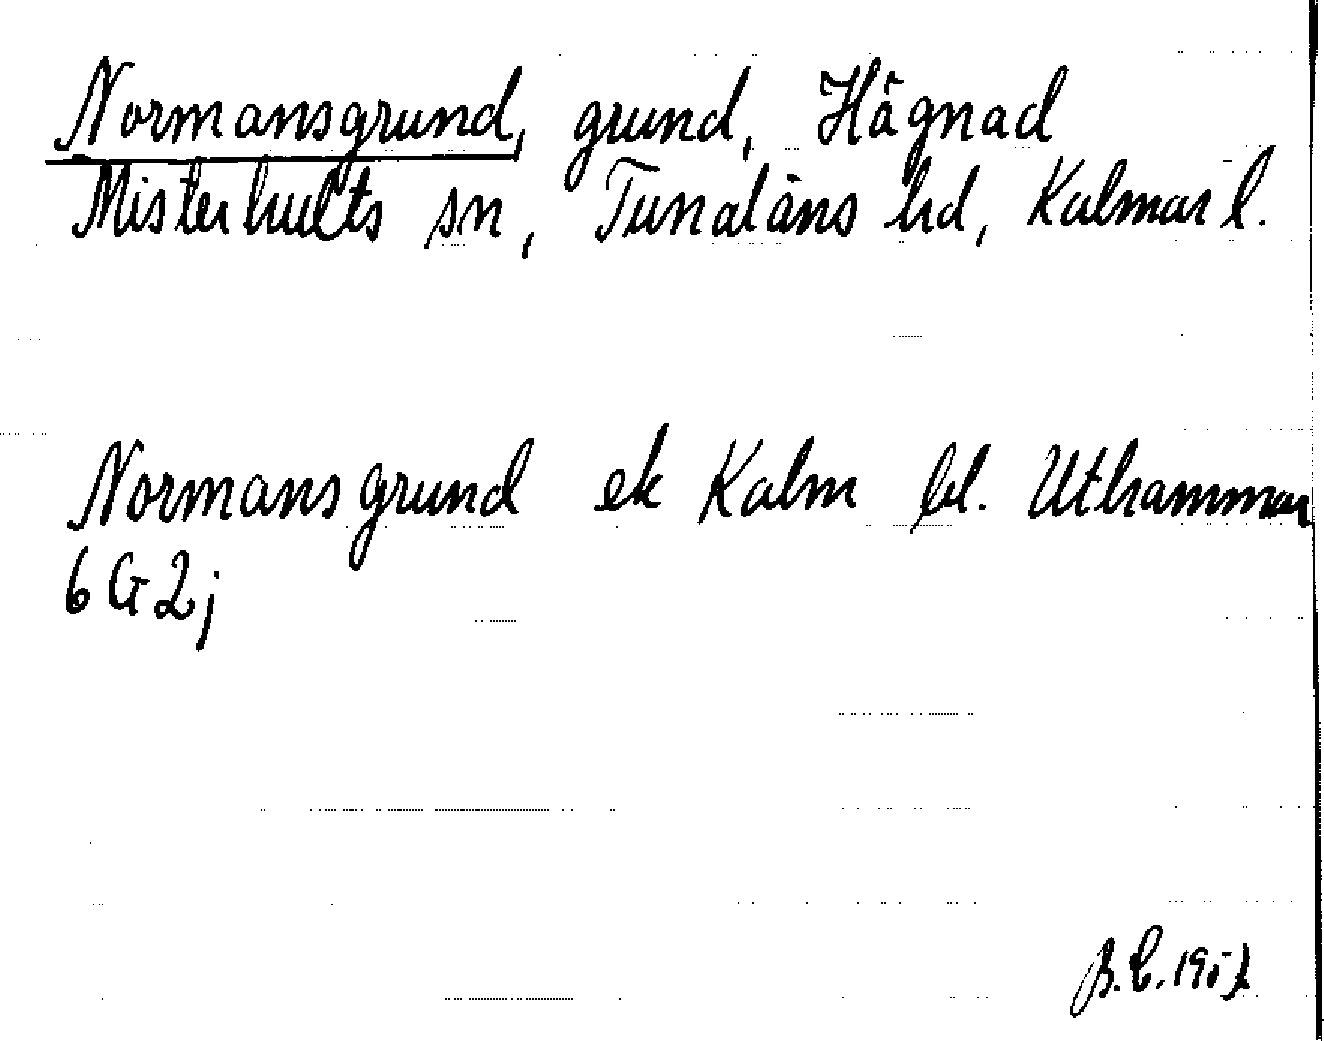 Normansgrund, grund, Hägnad
Misterhults sn, Tunaläns hd, Kalmar l.
Normansgrund ek Kalm bl. Uthammar
6G2j
B.C.